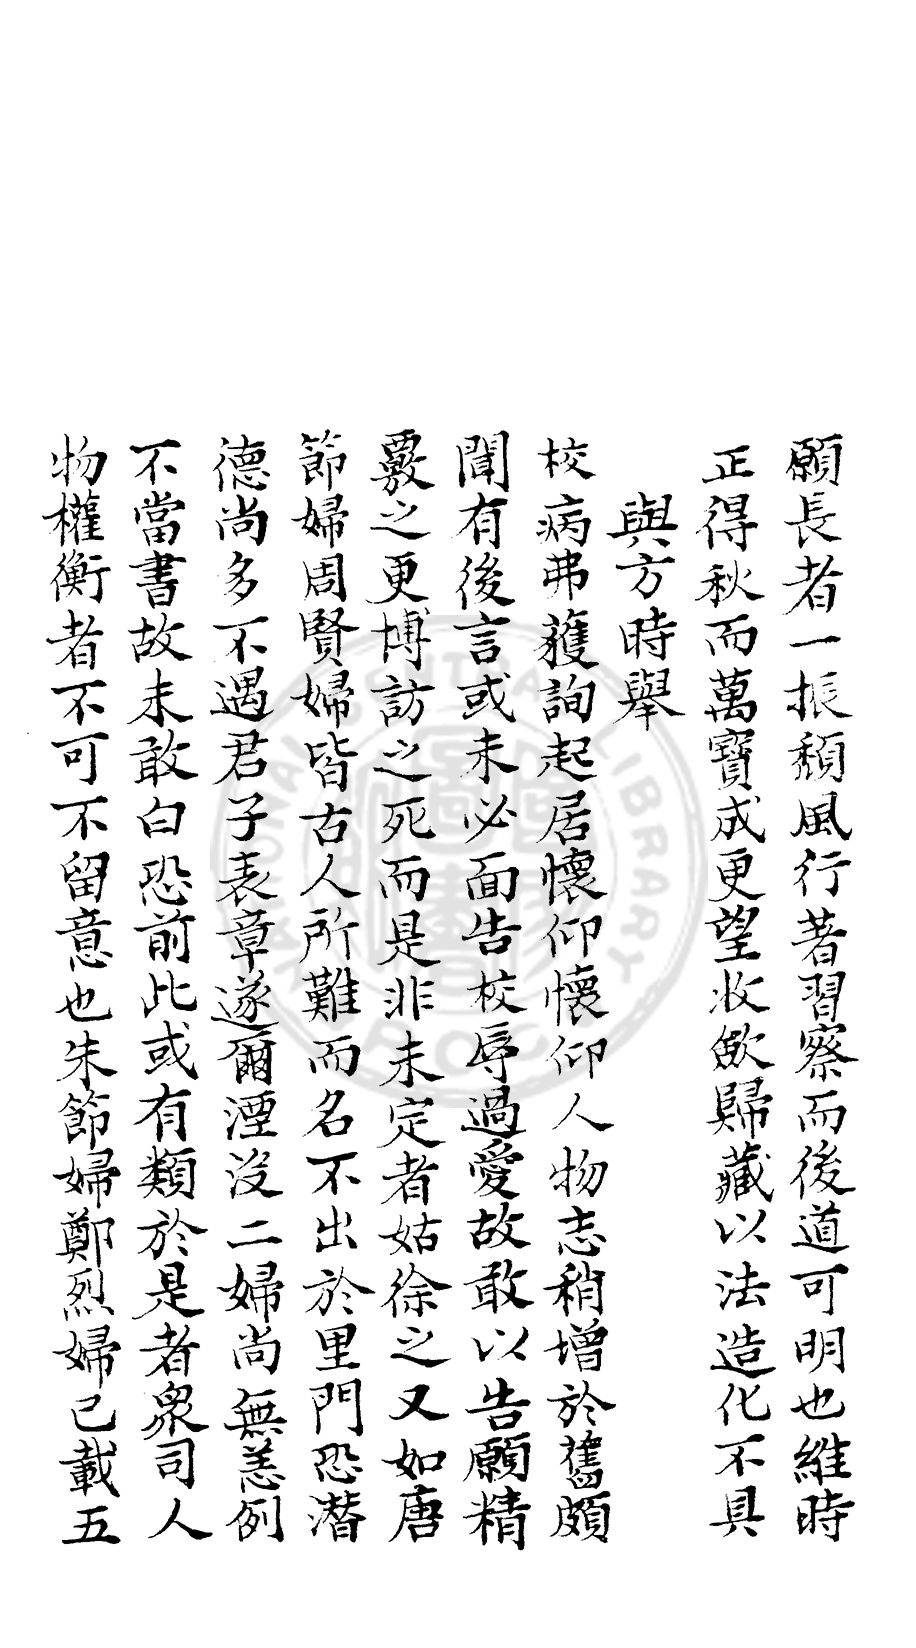 願長者一振頹風行著習察而後道可明也維時
正得秋而萬寶成更望收斂歸藏以法造化不具
與方時舉
校病弗獲詢起居懷仰懷仰人物志稍增於舊頗
聞有後言或未必面告校辱過愛故敢以告願精
覈之更博訪之死而是非未定者姑徐之又如唐
節婦周賢婦皆古人所難而名不出於里門恐潛
德尚多不遇君子表章遂爾湮没二婦尚無恙例
不當書故未敢白恐前此或有類於是者衆司人
物權衡者不可不留意也朱節婦鄭烈婦已載五